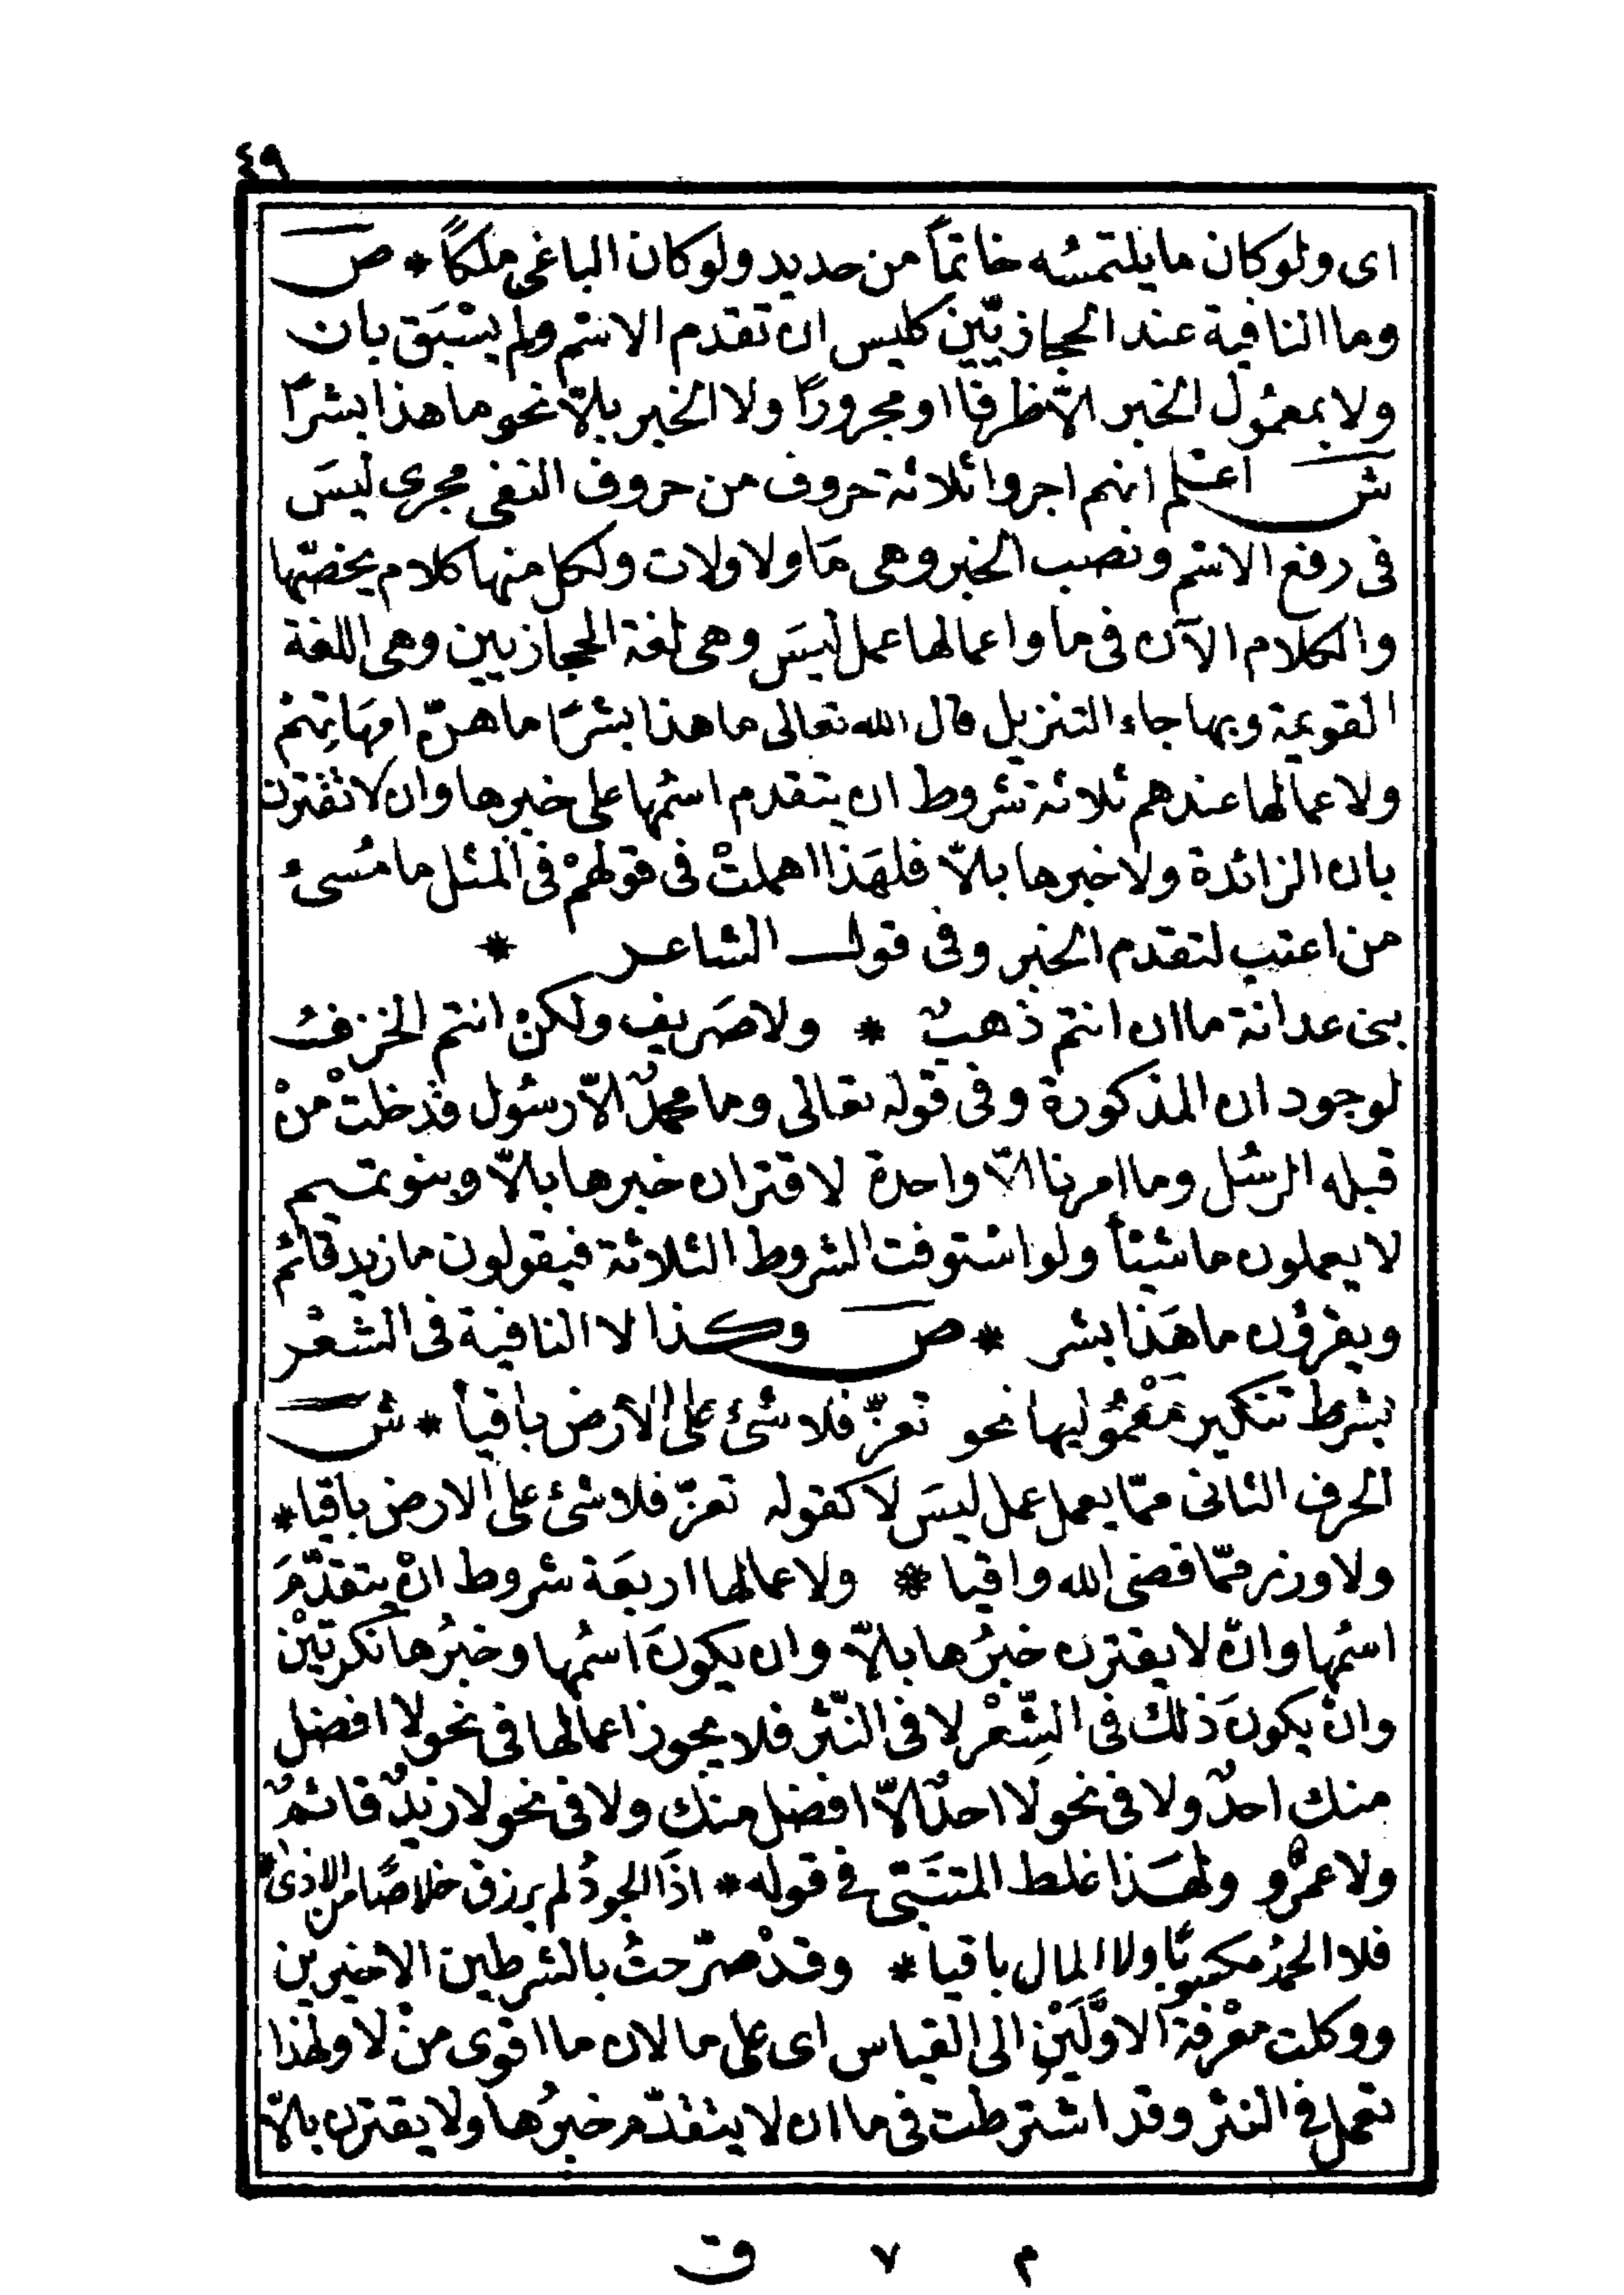 ٤٩
اى ولو كان ما يلتمسُه خاتماً من حديد ولو كان الباغى ملكاً * ص
وما النافية عند الحجازيّين كليس ان تقدم الاسْم ولم يسْبَق بان
ولا بمعمُول الخبر الاّ ظرفا او مجروراً ولا الخبر بالاّ نحو ما هذا بشراً
ش اعلم انهم اجروا ثلاثة حروف من حروف النفى مجرى ليسَ
فى رفع الاسْم ونصب الخبر وهى مَا ولا ولات ولكل منها كلام يخصّها
والكلام الآن فى ما واعمالها عمل ليسَ وهى لغة الحجازيين وهى اللغة
القويمة وبها جاء التنزيل قال الله تعالى ما هذا بشرًا ما هنّ امهَاتِهمْ
ولاعمالها عندهم ثلاثة شروط ان يتقدم اسْمُها على خبرها وان لا تقترن
بان الزائدة ولا خبرها بالاّ فلهَذا اهملتْ فى قولهمْ فى المثل ما مُسىء
من اعتب لتقدم الخبر وفى قول الشاعر *
بنى عدانة ما ان انتم ذهبٌ * ولا صَريف ولكنْ انتم الخزفُ
لوجود ان المذكورة وفى قوله تعالى وما محمدٌ الاّ رسُول قدْ خلتْ منْ
قبله الرسُل وما امرنا الاّ واحدة لاقتران خبرها بالاّ وبنو تميم
لا يعملون ما شيئاً ولو اسْتوفت الشروط الثلاثة فيقولون ما زيد قائم
ويقرؤن ما هَذا بشر * ص وكذا لا النافية فى الشعْر
بشرط تنكير مَعْمُوليها نحو تعزّ فلا شئ على الأرض باقياً * ش
الحرف الثانى ممّا يعمل عمل ليسَ لا كقوله تعزّ فلا شئ على الارض باقيا *
ولا وزر ممّا قضى الله واقيا * ولاعمالها اربعَة شروط انْ يتقدّمَ
اسْمُها وانْ لا يقترن خبرُها بالاّ وان يكونَ اسْمُها وخبرُها نكرتيْن
وانْ يكونَ ذلك فى الشِّعْر لا فى النّثر فلا يجوز اعمالها فى نحو لا افضل
منك احدٌ ولا فى نحو لا احدٌ الاّ افضل منك ولا فى نحو لا زيْدٌ قائمٌ
ولا عمْرٌو ولهَذا غلط المتنَبّى فى قوله * اذَا الجودُ لم يرزق خلاصًا من الاذى *
فلا الحمدُ مكسوبًا ولا المال باقيا * وقدْ صرّحتُ بالشرطين الاخيرين
ووكلت معْرفة الاوّلَيْن الى القياس اى على ما لان ما اقوى منْ لا ولهذا
تعمل فى النثر وقد اشترطت فى ما ان لا يتقدّم خبرُها ولا يقترن بالاّ
م ٧ ق